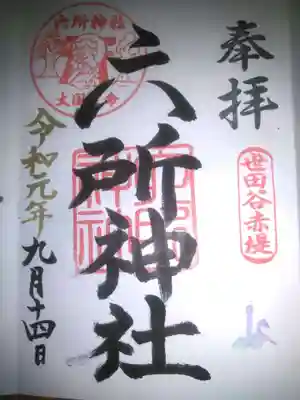 奉拝
世田谷赤堤
六所神社
六所神社
令和元年
九月十四日